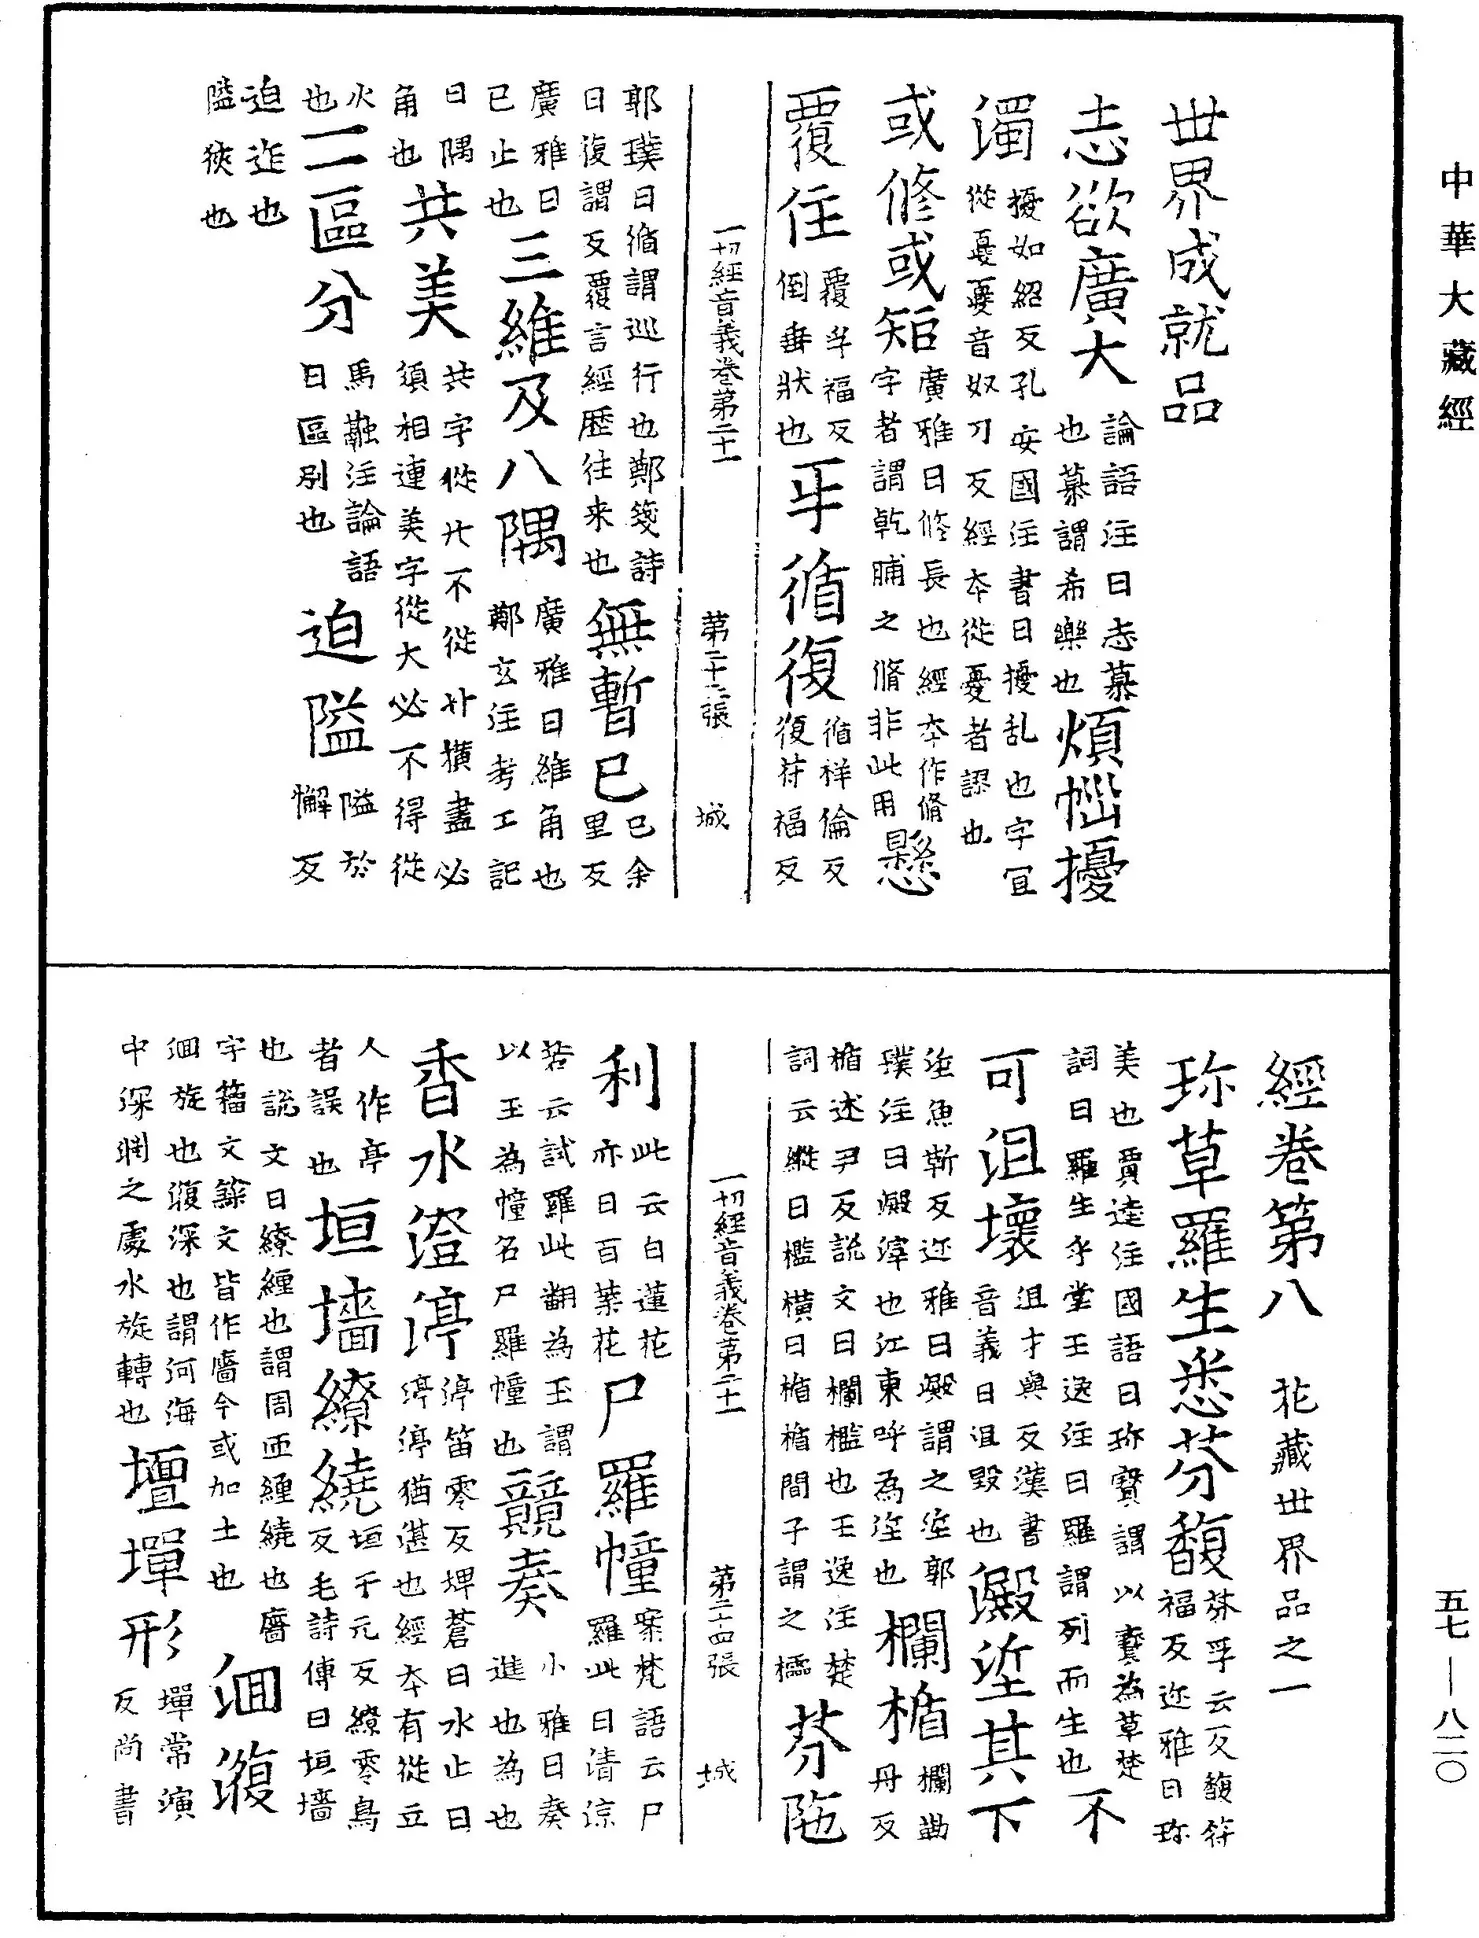 中華大藏經
世界成就品
志欲廣大 論語注曰志慕也慕謂希樂也 煩惱擾
濁 擾如紹反孔安國注書曰擾乱也字宜從憂憂音奴刀反經本從憂者謬也
或脩或短 廣雅曰脩長也經本作脩字者謂乹脯之脩非此用 懸
覆住 覆孚福反倒垂狀也 平循復 循祥倫反復苻福反
一切經音義卷第二十一 第二十三張 城
郭璞曰循謂巡行也鄭箋詩曰復謂反覆言經歷往来也 無暫已 已余里反
廣雅曰已止也 三維及八隅 廣雅曰維角也鄭玄注考工記
曰隅角也 共美 共字從廿不從廾横畫必須相連美字從大必不得從
火也 二區分 馬融注論語曰區别也 迫隘 隘於懈反
迫迮也隘狹也
經卷第八 花藏世界品之一
珎草羅生悉芬馥 芬孚云反馥符福反迩雅曰珎
美也賈逵注國語曰珎寶謂以寶為草楚詞曰羅生乎堂王逸注曰羅謂列而生也 不
可沮壞 沮才與反漢書音義曰沮毀也 澱埿其下
埿魚靳反迩雅曰澱謂之埿郭璞注曰澱滓也江東呼為埿也 欄楯 欄勒丹反
楯述尹反說文曰欄檻也王逸注楚詞云縱曰檻横曰楯楯間子謂之櫺 芬陁
一切經音義卷第二十一 第二十四張 城
利 此云白蓮花亦曰百葉花 尸羅幢 案梵語云尸羅此曰清涼
若云試羅此翻為玉謂以玉為幢名尸羅幢也 競奏 小雅曰奏進也為也
香水澄渟 渟笛零反埤蒼曰水止曰渟渟猶湛也經本有從立
人作亭者誤也 垣墻繚繞 垣于元反繚零鳥反毛詩傳曰垣墻
也說文曰繚纏也謂周匝纏繞也廧字籀文篆文皆作牆今或加土也 洄澓
洄旋也澓深也謂河海中深𣶒之處水旋轉也 壇墠形 墠常演反尚書
五七—八二〇